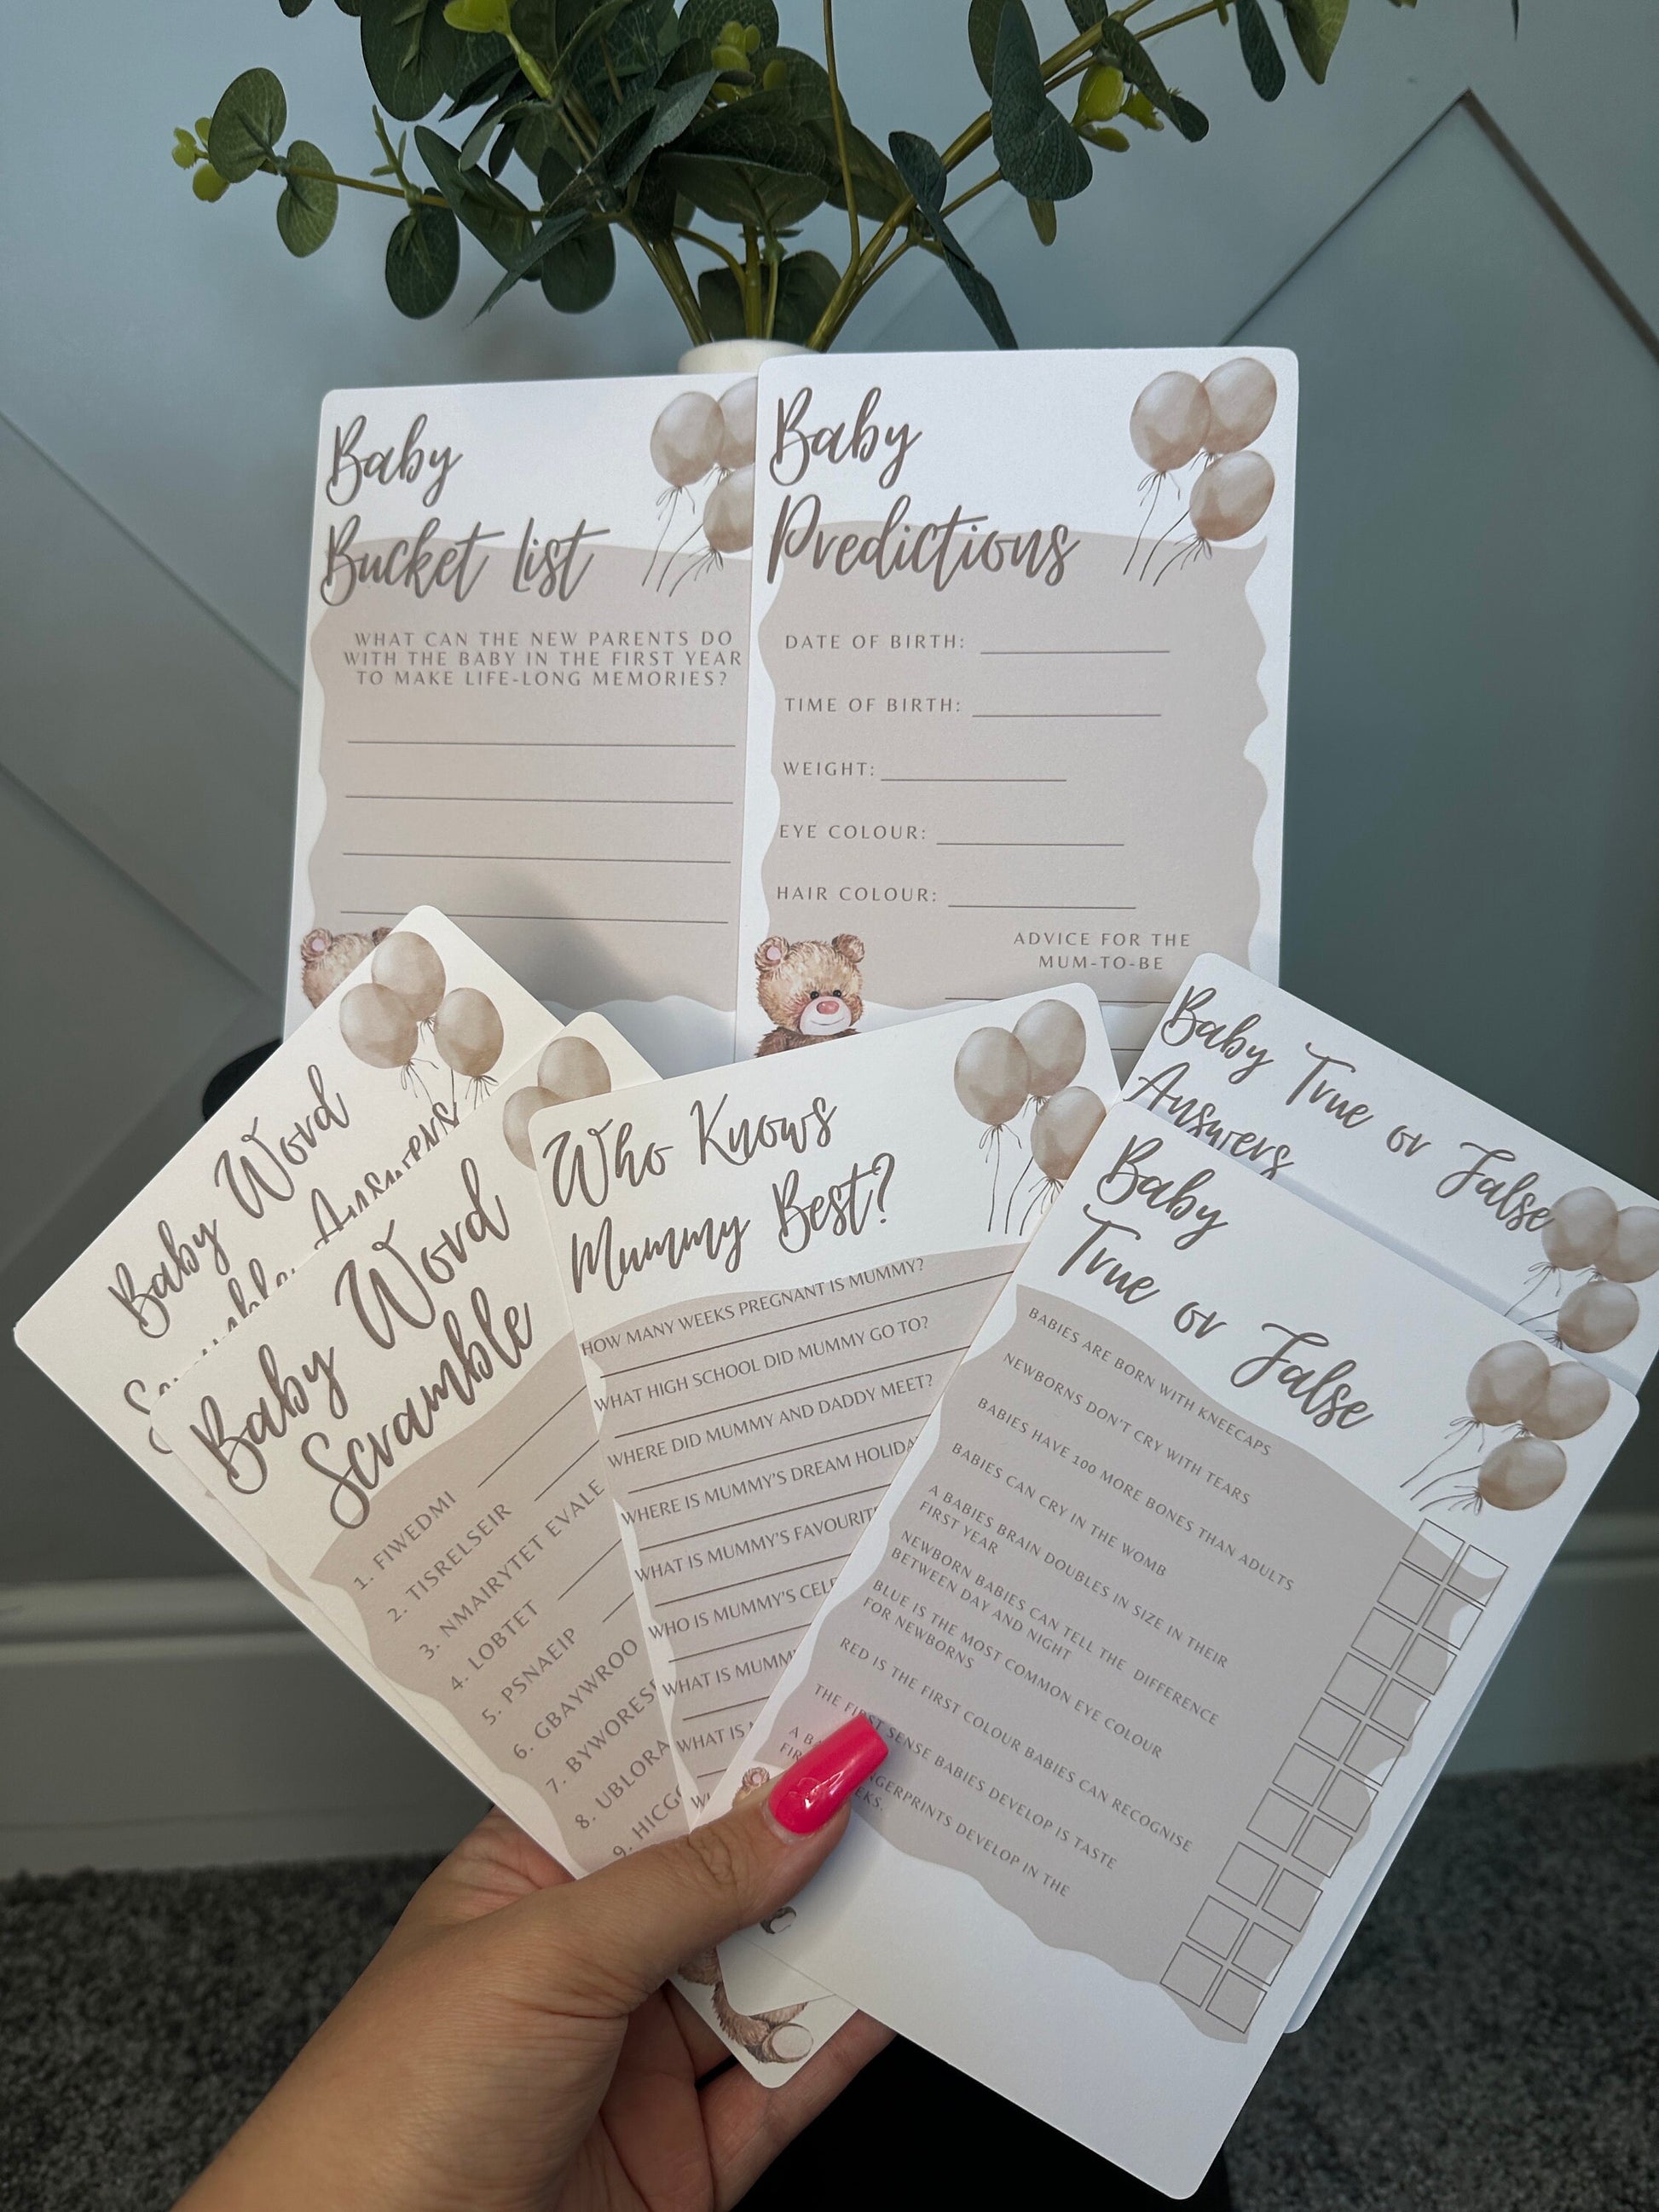 Baby
Bucket List
WHAT CAN THE NEW PARENTS DO
WITH THE BABY IN THE FIRST YEAR
TO MAKE LIFE-LONG MEMORIES?
Baby
Predictions
DATE OF BIRTH:
TIME OF BIRTH:
WEIGHT:
EYE COLOUR:
HAIR COLOUR:
ADVICE FOR THE
MUM-TO-BE
Baby Word
Answers
Baby Word
Scramble
1. FIWEDMI
2. TISRELSEIR
3. NMAIRYTET EVALE
4. LOBTET
5. PSNAEIP
6. GBAYWROO
7. BYWORESE
8. UBLORA
9. HICCG
Who Knows
Mummy Best?
HOW MANY WEEKS PREGNANT IS MUMMY?
WHAT HIGH SCHOOL DID MUMMY GO TO?
WHERE DID MUMMY AND DADDY MEET?
WHERE IS MUMMY'S DREAM HOLIDA
WHAT IS MUMMY'S FAVOURIT
WHO IS MUMMY'S CELE
WHAT IS MUMM
WHAT IS
Baby True or False
Answers
Baby
True or False
BABIES ARE BORN WITH KNEECAPS
NEWBORNS DON'T CRY WITH TEARS
BABIES HAVE 100 MORE BONES THAN ADULTS
BABIES CAN CRY IN THE WOMB
A BABIES BRAIN DOUBLES IN SIZE IN THEIR
FIRST YEAR
NEWBORN BABIES CAN TELL THE DIFFERENCE
BETWEEN DAY AND NIGHT
BLUE IS THE MOST COMMON EYE COLOUR
FOR NEWBORNS
RED IS THE FIRST COLOUR BABIES CAN RECOGNISE
THE FIRST SENSE BABIES DEVELOP IS TASTE
A B NGERPRINTS DEVELOP IN THE
FIR EKS.